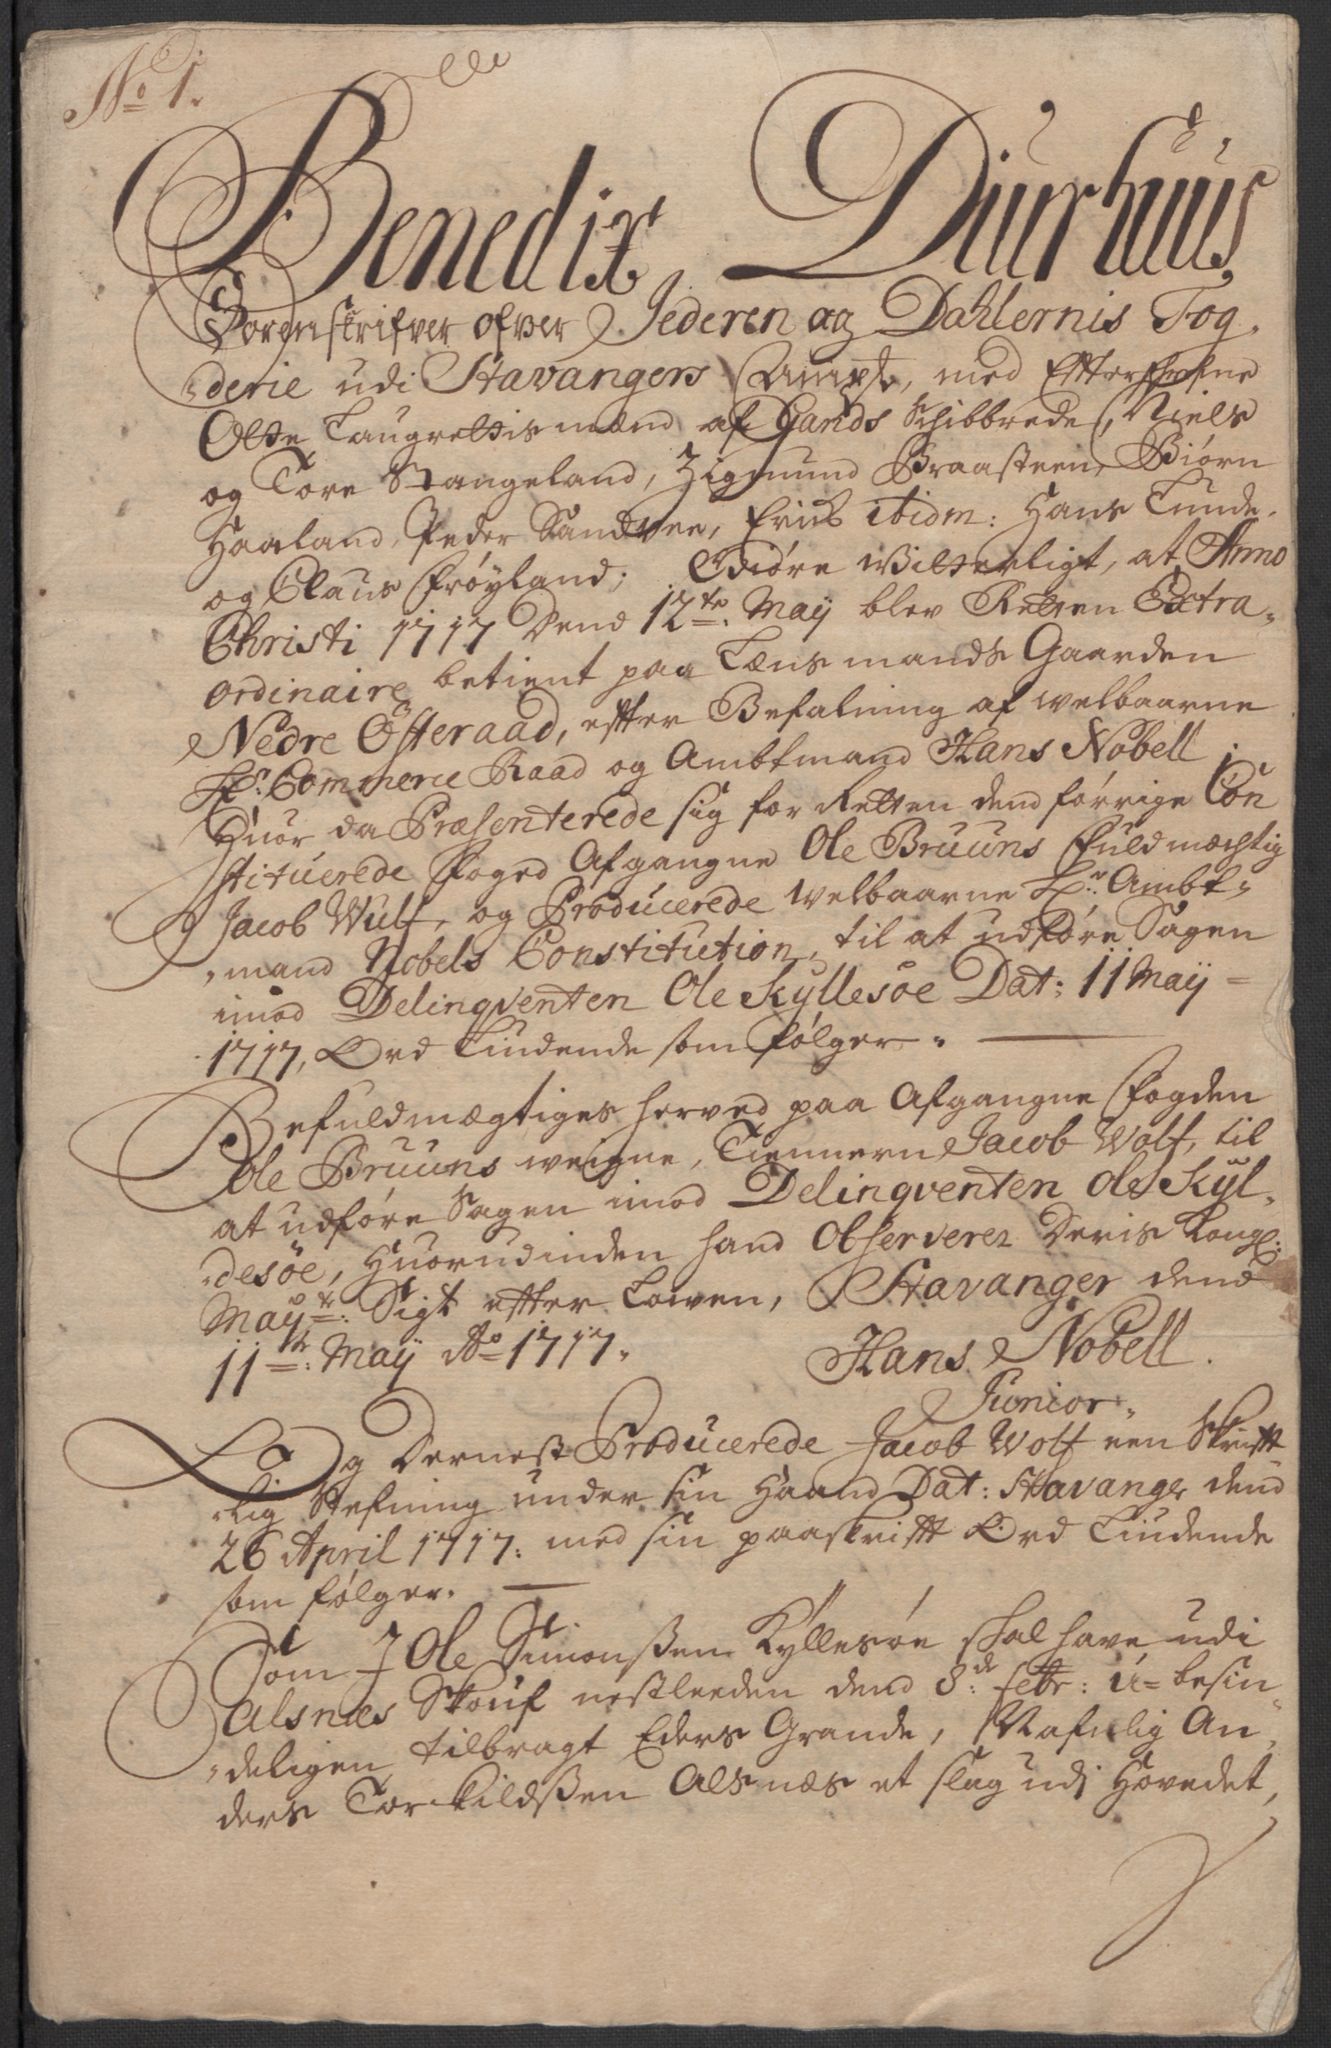 No 1.
Benedix Diurhuus
Sorenskrifver ofver Jederen og Dahlernis Fog„
„derie udi Stavangers Ampt, med Effterschrefne
Otte Laugrettismænd af Gands Schibbrede, Niels
og Tore Stangeland, Zigmund Braasteen, Biørn
Haaland, Peder Sandvee, Erich ibidm: Hans Lunde,
og Claus Frøyland; Giøre Witterligt, at Anno
Christi 1717 Dend 12te May blev Retten Extra„
ordinaire betient paa Lænsmands Gaarden
Nedre Østeraad, efter Befalning af welbaarne
Hr: Commerce Raad og Ambtmand Hans Nobell
Huor da Præsenterede sig for Retten dend forrige Con
stituerede Foged Afgangne Ole Bruuns Fuldmæchtig
Jacob Wulf, og Producerede welbaarne Hr: Ambt„
„mand Nobels Constitution, til at udføre Sagen
imod Delinqventen Ole Kyllesøe Dat: 11 Maij
1717, Ord Liudende som følger.
Befuldmægtiges herved paa Afgangne Fogden
Ole Bruuns weigne, Tienneren Jacob Wolf, til
at udføre Sagen imod Delinqventen Ole Kyl„
„desøe, Huorudinden hand Observerer Deris Kongl:
Mayts: Sigt efter Lowen, Stavanger dend
11te: Maij Ao 1717.
Hans Nobell.
Junior.
Og Dernest Producerede Jacob Wolf een Skrifft
„lig Stefning under sin Haand Dat: Stavanger dend
26 April 1717: med sin paaskrifft Ord Liudende
som følger.
Som I Ole Simonßen Kyllesøe skal have udi
Alsnæs Skouf nestleeden dend 8de febr: u=besin„
„deligen tilbragt Eders Grande, Nafnlig An„
ders Torkildßen Alsnæs et slag udj Hovedet,